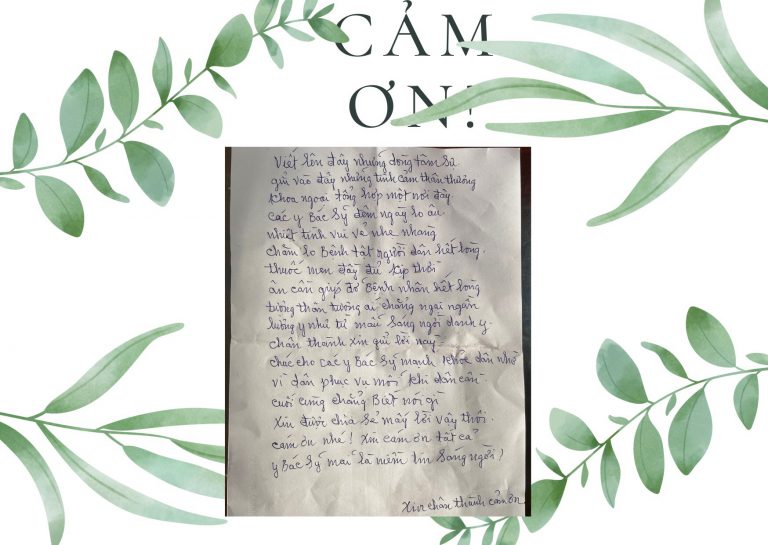 CẢM
ƠN!
Viết lên đây những dòng tâm sự
gửi vào đây những tình cảm thân thương
khoa ngoại tổng hợp một nơi đây
các y Bác Sỹ đêm ngày lo âu
nhiệt tình vui vẻ nhẹ nhàng
chăm lo Bệnh tật người dân hết lòng.
thuốc men đầy đủ kịp thời
ân cần giúp đỡ Bệnh nhân hết lòng
tương thân tương ái chẳng ngại ngần
lương y như từ mẫu sáng ngời danh y.
chân thành xin gửi lời này
chúc cho các y Bác Sỹ mạnh khỏe dân nhờ
vì dân phục vụ mỗi khi dân cần.
cuối cùng chẳng Biết nói gì
Xin được chia sẻ mấy lời vậy thôi.
cảm ơn nhé! Xin cảm ơn tất cả
y Bác Sỹ mãi là niềm tin sáng ngời!
Xin chân thành cảm ơn.